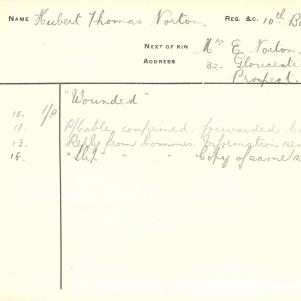 NAME Hubert Thomas Norton. REG. &C: 10th B
NEXT OF KIN Mrs E. Norton.
ADDRESS 32. Gloucester
Prospect.
"Wounded"
10. 1/P
18. P/Cable confirmed forwarded
18. Reply from Commdt. Information
18. "Slip" " " Copy of same/s